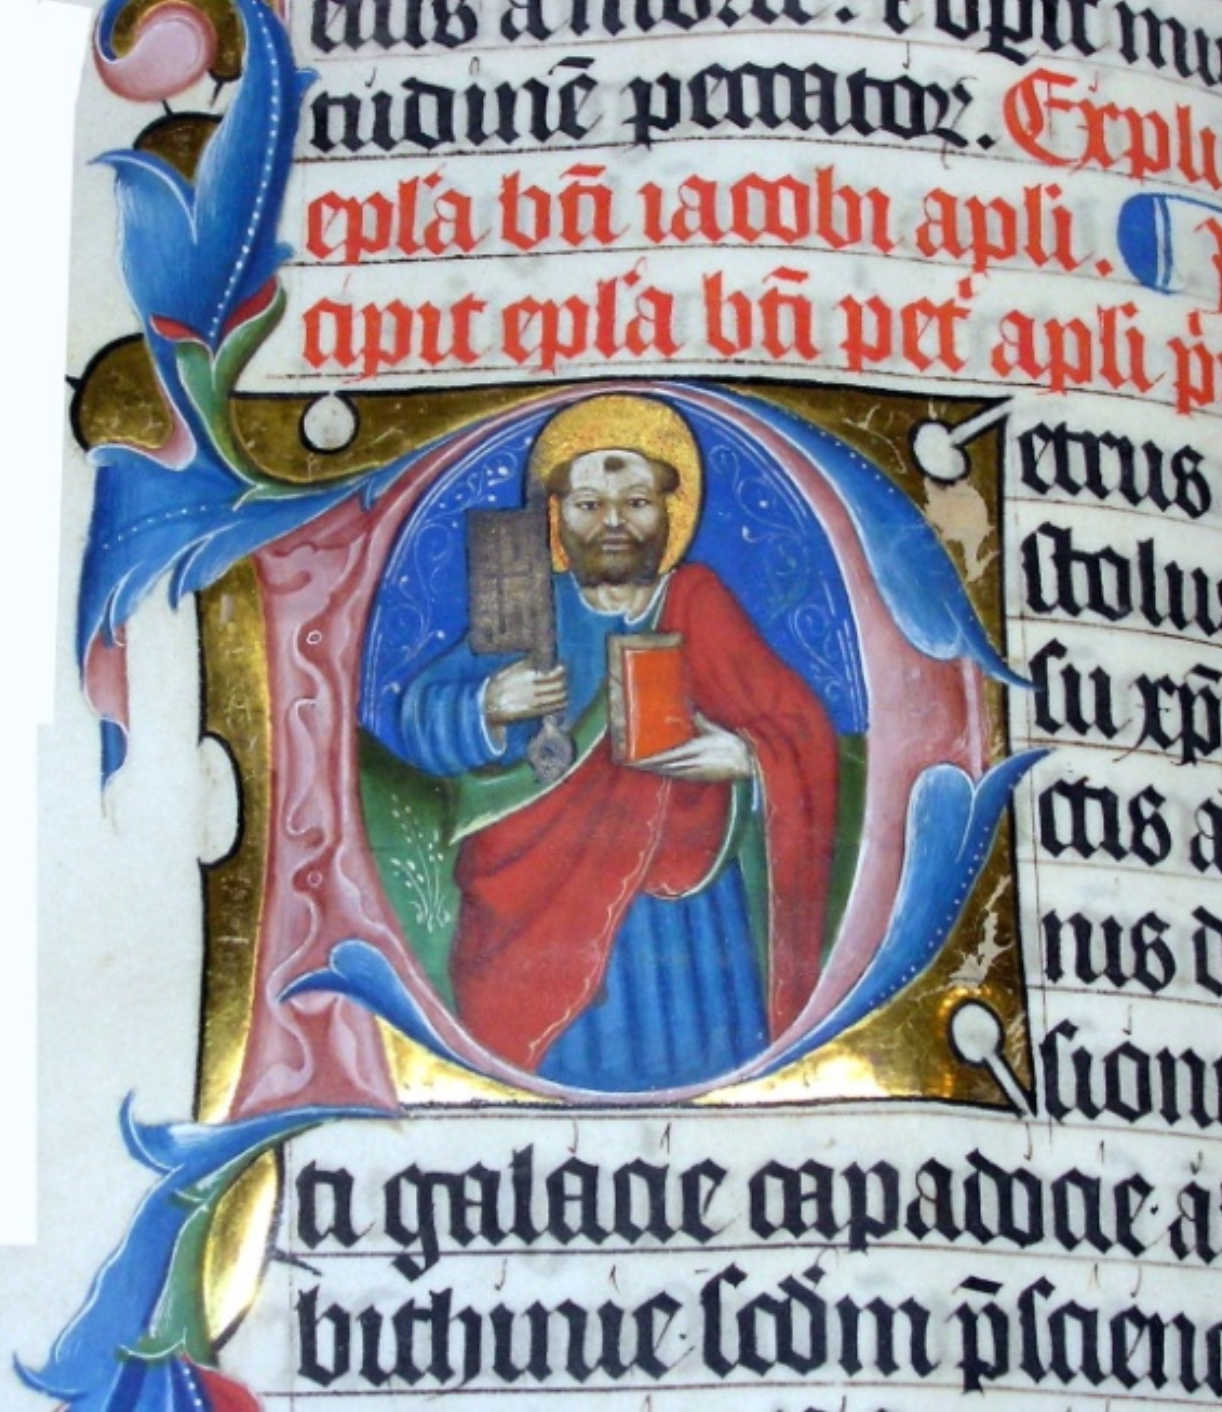 eius a morte. ⁊ opit mu
tudinē peccatoꝝ. Expli
epl'a bti iacobi apli. ¶
cipit epl'a bti pet' apli p'
Petrus
stolus
su xp̄
ctis a
nis d
sion
ti galacie capadocie a
bithinie scdm p̄scienc